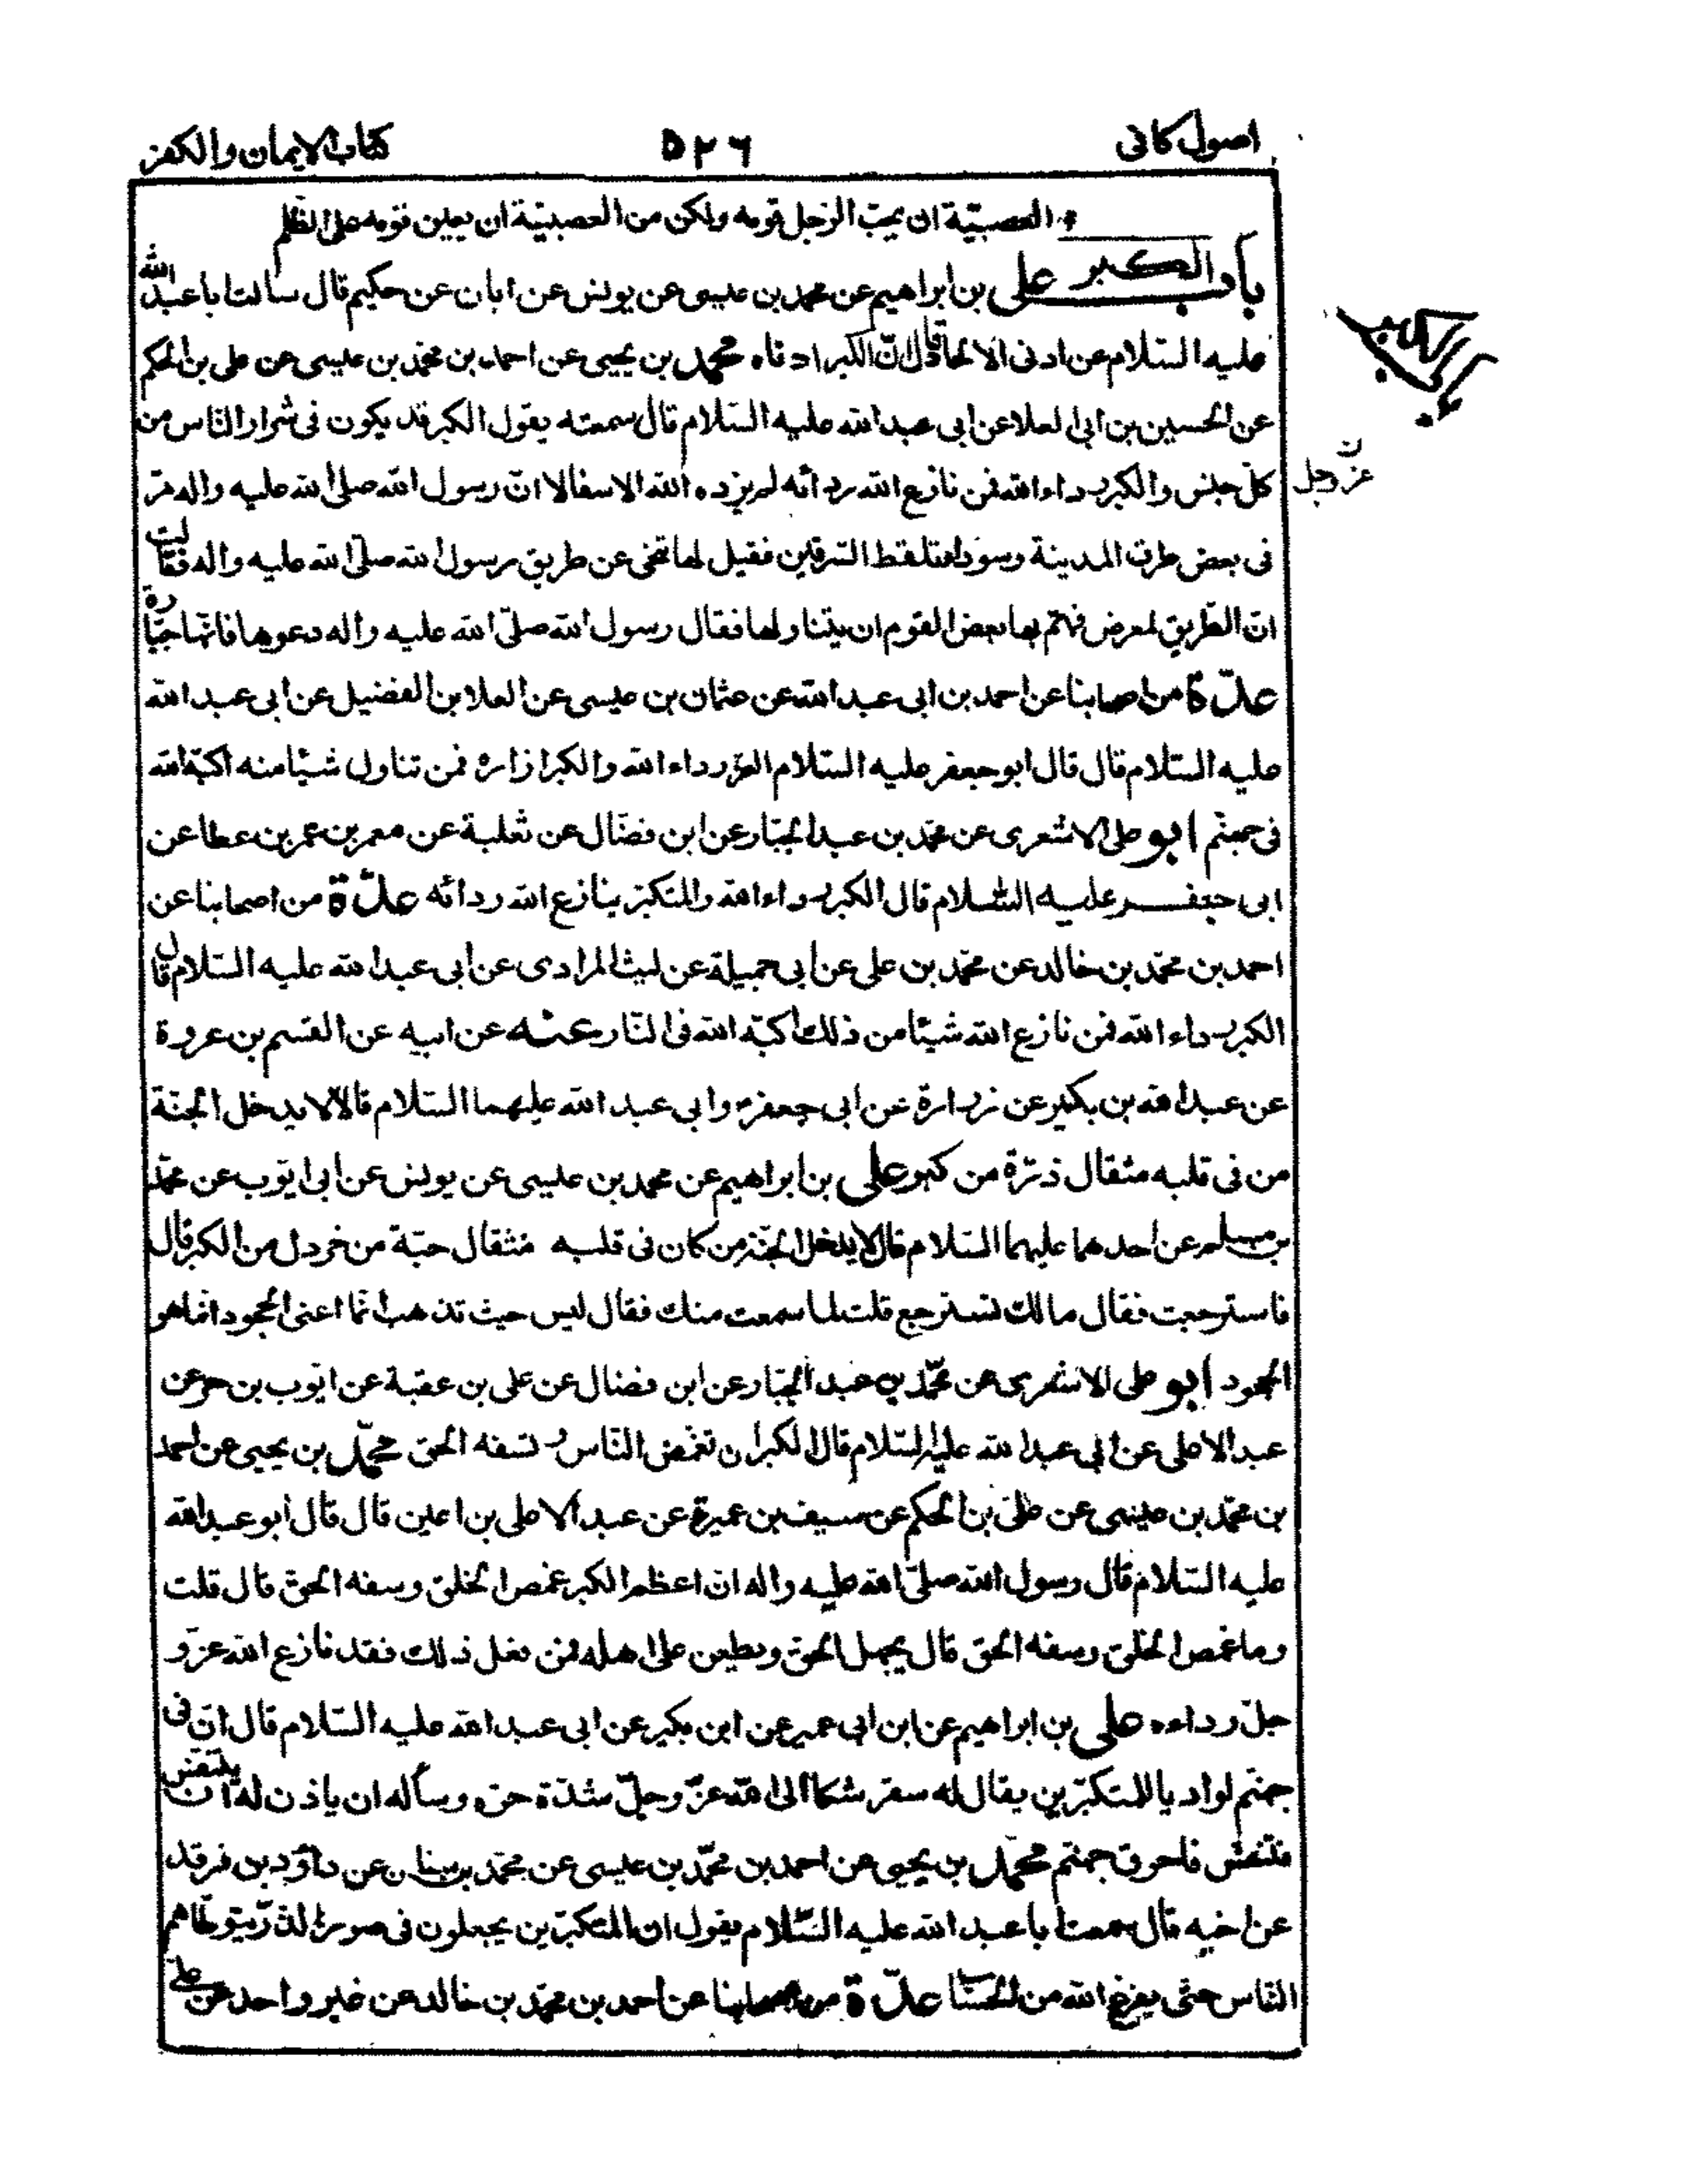 اصول كافى
٥٢٦
كتاب الايمان والكفر
العصبيّة ان يحبّ الرّجل قومه ولكن من العصبيّة ان يعين قومه على الظلم
باب الكبر على بن ابراهيم عن محمد بن عيسى عن يونس عن ابان عن حكيم قال سالت ابا عبد الله
عليه السّلام عن ادنى الالحاد قال انّ الكبر ادناه محمّد بن يحيى عن احمد بن محمّد بن عيسى عن على بن الحكم
عن الحسين بن ابى العلا عن ابى عبد الله عليه السّلام قال سمعته يقول الكبر قد يكون فى شرار النّاس من
كلّ جنس والكبر رداء الله فمن نازع الله ردائه لم يزده الله الا سفالا انّ رسول الله صلى الله عليه واله مرّ
عزّ وجل
فى بعض طرق المدينة وسوداء تلقط السّرقين فقيل لها تنحّى عن طريق رسول الله صلّى الله عليه واله فقالت
انّ الطّريق لمعرض فهمّ بها بعض القوم ان يتناولها فقال رسول الله صلّى الله عليه واله دعوها فانّها جبّارة
عدّة من اصحابنا عن احمد بن ابى عبد الله عن عثمان بن عيسى عن العلا بن الفضيل عن ابى عبد الله
عليه السّلام قال قال ابو جعفر عليه السّلام العزّ رداء الله والكبر ازاره فمن تناول شيئا منه اكبّه الله
فى جهنّم ابو على الاشعرى عن محمّد بن عبد الجبّار عن ابن فضّال عن ثعلبة عن معمر بن عمر بن عطا عن
ابى جعفر عليه السّلام قال الكبر رداء الله والمتكبّر ينازع الله ردائه عدّة من اصحابنا عن
احمد بن محمّد بن خالد عن محمّد بن على عن ابى جميلة عن ليث المرادى عن ابى عبد الله عليه السّلام قال
الكبر رداء الله فمن نازع الله شيئا من ذلك اكبّه الله فى النّار عنه عن ابيه عن القسم بن عروة
عن عبد الله بن بكير عن زرارة عن ابى جعفر وابى عبد الله عليهما السّلام قالا لا يدخل الجنّة
من فى قلبه مثقال ذرّة من كبر على بن ابراهيم عن محمد بن عيسى عن يونس عن ابى ايّوب عن محمّد
بن مسلم عن احدهما عليهما السّلام قال لا يدخل الجنّة من كان فى قلبه مثقال حبّة من خردل من الكبر قال
فاسترجعت فقال مالك تسترجع قلت لما سمعت منك فقال ليس حيث تذهب انّما اعنى الجحود انّما هو
الجحود ابو على الاشعرى عن محمّد بن عبد الجبّار عن ابن فضال عن على بن عقبة عن ايّوب بن حر عن
عبد الاعلى عن ابى عبد الله عليه السّلام قال الكبر ان تغمص النّاس وتسفه الحق محمّد بن يحيى عن احمد
بن محمّد بن عيسى عن على بن الحكم عن سيف بن عميرة عن عبد الاعلى بن اعين قال قال ابو عبد الله
عليه السّلام قال رسول الله صلّى الله عليه واله ان اعظم الكبر غمص الخلق وسفه الحق قال قلت
وما غمص الخلق وسفه الحق قال يجهل الحق ويطعن على اهله فمن فعل ذلك فقد نازع الله عزّ و
جلّ رداءه على بن ابراهيم عن ابن ابى عمير عن ابن بكير عن ابى عبد الله عليه السّلام قال انّ فى
جهنّم لواديا للمتكبّرين يقال له سقر شكا الى الله عزّ وجلّ شدّة حرّه وسأله ان ياذن له ان يتنفّس
فتنفّس فاحرق جهنّم محمّد بن يحيى عن احمد بن محمّد بن عيسى عن محمّد بن سنان عن داود بن فرقد
عن اخيه قال سمعت ابا عبد الله عليه السّلام يقول ان المتكبّرين يجعلون فى صور الذّرّ يتوطّاهم
النّاس حتّى يفرغ الله من الحساب عدّة من اصحابنا عن احمد بن محمّد بن خالد عن غير واحد عن على